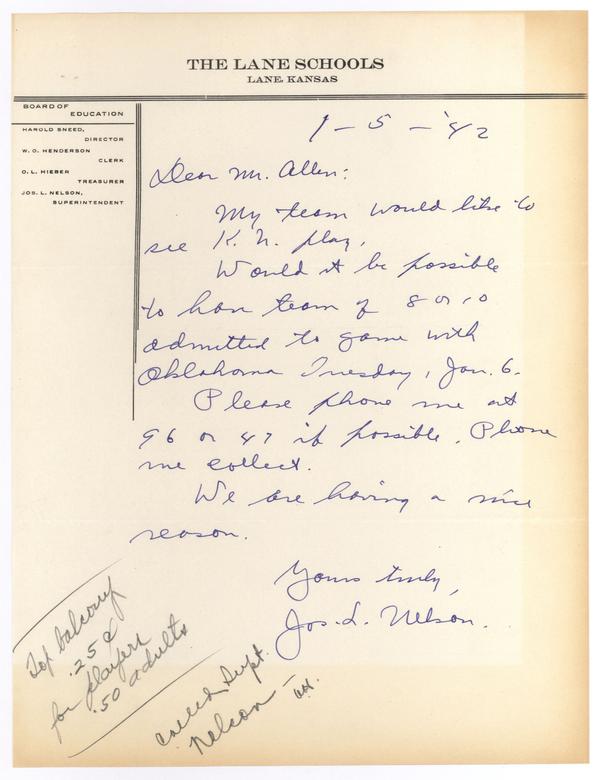 THE LANE SCHOOLS
LANE, KANSAS
BOARD OF
EDUCATION
HAROLD SNEED,
DIRECTOR
W. O. HENDERSON
CLERK
O. L. HIEBER
TREASURER
JOS. L. NELSON,
SUPERINTENDENT
1-5-'42
Dear Mr. Allen:
My team would like to
see K. U. play.
Would it be possible
to have team of 8 or 10
admitted to game with
Oklahoma Tuesday, Jan. 6.
Please phone me at
96 or 47 if possible. Phone
me collect.
We are having a nice
season.
Yours truly,
Jos. L. Nelson.
Top balcony
.25¢
for players
.50 adults
called Supt.
Nelson -